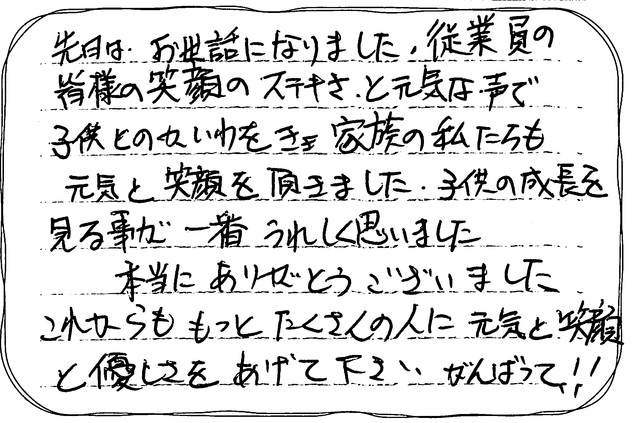 先日は、お世話になりました。従業員の
皆様の笑顔のステキさ、と元気な声で
子供とのかいわをきき 家族の私たちも
元気と笑顔を頂きました。子供の成長を
見る事が 一番 うれしく思いました
本当に ありがとうございました
これからも もっと たくさんの人に 元気と笑顔
と優しさを あげて下さい がんばって!!